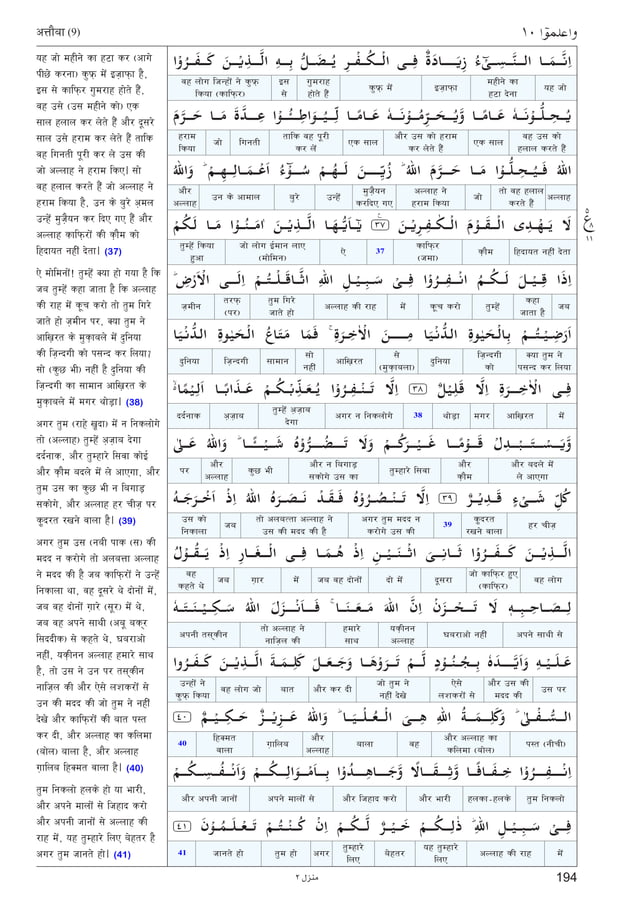 अत्तौबा (9)
واعلموٓا ١٠
यह जो महीने का हटा कर (आगे
पीछे करना) कुफ़ में इज़ाफ़ा है,
इस से काफ़िर गुमराह होते हैं,
वह उसे (उस महीने को) एक
साल हलाल कर लेते हैं और दूसरे
साल उसे हराम कर लेते हैं ताकि
वह गिनती पूरी कर ले उस की
जो अल्लाह ने हराम किए। सो
वह हलाल करते हैं जो अल्लाह ने
हराम किया है, उन के बुरे अमल
उन्हें मुज़ैयन कर दिए गए हैं और
अल्लाह काफ़िरों की क़ौम को
हिदायत नहीं देता। (37)
ऐ मोमिनों! तुम्हें क्या हो गया है कि
जब तुम्हें कहा जाता है कि अल्लाह
की राह में कूच करो तो तुम गिरे
जाते हो ज़मीन पर, क्या तुम ने
आख़िरत के मुक़ाबले में दुनिया
की ज़िन्दगी को पसन्द कर लिया।
सो (कुछ भी) नहीं है दुनिया की
ज़िन्दगी का सामान आख़िरत के
मुक़ाबले में मगर थोड़ा। (38)
अगर तुम (राहे खुदा) में न निकलोगे
तो (अल्लाह) तुम्हें अज़ाब देगा
दर्दनाक, और तुम्हारे सिवा कोई
और क़ौम बदले में ले आएगा, और
तुम उस का कुछ भी न बिगाड़
सकोगे, और अल्लाह हर चीज़ पर
कुदरत रखने वाला है। (39)
अगर तुम उस (नबी पाक (स) की
मदद न करोगे तो अलबत्ता अल्लाह
ने मदद की है जब काफ़िरों ने उन्हें
निकाला था, वह दूसरे थे दोनों में,
जब वह दोनों ग़ारे (सूर) में थे,
जब वह अपने साथी (अबू बक्र
सिद्दीक) से कहते थे, घबराओ
नहीं, यक़ीनन अल्लाह हमारे साथ
है, तो उस ने उन पर तस्कीन
नाज़िल की और ऐसे लशकरों से
उन की मदद की जो तुम ने नहीं
देखे और काफ़िरों की बात पस्त
कर दी, और अल्लाह का कलिमा
(बोल) बाला है, और अल्लाह
ग़ालिब हिक्मत वाला है। (40)
तुम निकलो हलके हो या भारी,
और अपने मालों से जिहाद करो
और अपनी जानों से अल्लाह की
राह में, यह तुम्हारे लिए बेहतर है
अगर तुम जानते हो। (41)
اِنَّمَا النَّسِىْٓءُ زِيَادَةٌ فِى الْكُفْرِ يُضَلُّ بِهِ الَّذِيْنَ كَفَرُوْا
वह लोग जिन्हों ने कुफ़ किया (काफ़िर) इस से गुमराह होते हैं कुफ़ में इज़ाफ़ा महीने का हटा देना यह जो
يُحِلُّوْنَهٗ عَامًا وَّيُحَرِّمُوْنَهٗ عَامًا لِّيُوَاطِئُوْا عِدَّةَ مَا حَرَّمَ
हराम किया जो गिनती ताकि वह पूरी कर लें एक साल और उस को हराम कर लेते हैं एक साल वह उस को हलाल करते हैं
اللّٰهُ فَيُحِلُّوْا مَا حَرَّمَ اللّٰهُ ؕ زُيِّنَ لَهُمْ سُوْٓءُ اَعْمَالِهِمْ ؕ وَاللّٰهُ
और अल्लाह उन के आमाल बुरे उन्हें मुज़ैयन करदिए गए अल्लाह ने हराम किया जो तो वह हलाल करते हैं अल्लाह
لَا يَهْدِى الْقَوْمَ الْكٰفِرِيْنَ ۟ ٣٧ يٰٓاَيُّهَا الَّذِيْنَ اٰمَنُوْا مَا لَكُمْ
तुम्हें किया हुआ जो लोग ईमान लाए (मोमिन) ऐ 37 काफ़िर (जमा) क़ौम हिदायत नहीं देता
اِذَا قِيْلَ لَكُمُ انْفِرُوْا فِىْ سَبِيْلِ اللّٰهِ اثَّاقَلْتُمْ اِلَى الْاَرْضِ ؕ
ज़मीन तरफ़ (पर) तुम गिरे जाते हो अल्लाह की राह में कूच करो तुम्हें कहा जाता है जब
اَرَضِيْتُمْ بِالْحَيٰوةِ الدُّنْيَا مِنَ الْاٰخِرَةِ ۚ فَمَا مَتَاعُ الْحَيٰوةِ الدُّنْيَا
दुनिया ज़िन्दगी सामान सो नहीं आख़िरत से (मुक़ाबला) दुनिया ज़िन्दगी को क्या तुम ने पसन्द कर लिया
فِى الْاٰخِرَةِ اِلَّا قَلِيْلٌ ٣٨ اِلَّا تَنْفِرُوْا يُعَذِّبْكُمْ عَذَابًا اَلِيْمًا ۙ
दर्दनाक अज़ाब तुम्हें अज़ाब देगा अगर न निकलोगे 38 थोड़ा मगर आख़िरत में
وَّيَسْتَبْدِلْ قَوْمًا غَيْرَكُمْ وَلَا تَضُرُّوْهُ شَيْـًٔا ؕ وَاللّٰهُ عَلٰى
पर और अल्लाह कुछ भी और न बिगाड़ सकोगे उस का तुम्हारे सिवा और क़ौम और बदले में ले आएगा
كُلِّ شَىْءٍ قَدِيْرٌ ٣٩ اِلَّا تَنْصُرُوْهُ فَقَدْ نَصَرَهُ اللّٰهُ اِذْ اَخْرَجَهُ
उस को निकाला जब तो अलबत्ता अल्लाह ने उस की मदद की है अगर तुम मदद न करोगे उस की 39 कुदरत रखने वाला हर चीज़
الَّذِيْنَ كَفَرُوْا ثَانِىَ اثْنَيْنِ اِذْ هُمَا فِى الْغَارِ اِذْ يَقُوْلُ
वह कहते थे जब ग़ार में जब वह दोनों दो में दूसरा जो काफ़िर हुए (काफ़िर) वह लोग
لِصَاحِبِهٖ لَا تَحْزَنْ اِنَّ اللّٰهَ مَعَنَا ۚ فَاَنْزَلَ اللّٰهُ سَكِيْنَتَهٗ
अपनी तस्कीन तो अल्लाह ने नाज़िल की हमारे साथ यक़ीनन अल्लाह घबराओ नहीं अपने साथी से
عَلَيْهِ وَاَيَّدَهٗ بِجُنُوْدٍ لَّمْ تَرَوْهَا وَجَعَلَ كَلِمَةَ الَّذِيْنَ كَفَرُوا
उन्हों ने कुफ़ किया वह लोग जो बात और कर दी जो तुम ने नहीं देखे ऐसे लशकरों से और उस की मदद की उस पर
السُّفْلٰى ؕ وَكَلِمَةُ اللّٰهِ هِىَ الْعُلْيَا ؕ وَاللّٰهُ عَزِيْزٌ حَكِيْمٌ ٤٠
40 हिक्मत वाला ग़ालिब और अल्लाह बाला वह और अल्लाह का कलिमा (बोल) पस्त (नीची)
اِنْفِرُوْا خِفَافًا وَّثِقَالًا وَّجَاهِدُوْا بِاَمْوَالِكُمْ وَاَنْفُسِكُمْ
और अपनी जानों अपने मालों से और जिहाद करो और भारी हलका-हलके तुम निकलो
فِىْ سَبِيْلِ اللّٰهِ ؕ ذٰلِكُمْ خَيْرٌ لَّكُمْ اِنْ كُنْتُمْ تَعْلَمُوْنَ ٤١
41 जानते हो तुम हो अगर तुम्हारे लिए बेहतर यह तुम्हारे लिए अल्लाह की राह में
ع
٥
٨
١١
منزل ٢
194